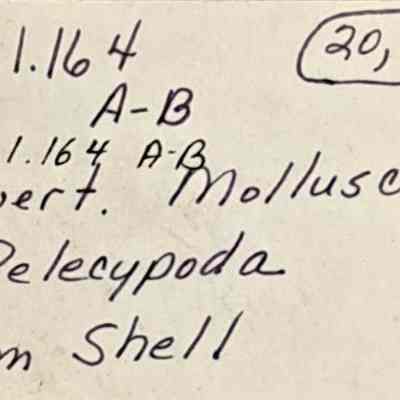 1.164 20,
A-B
1.164 A-B
ert. Mollusc
Pelecypoda
m Shell